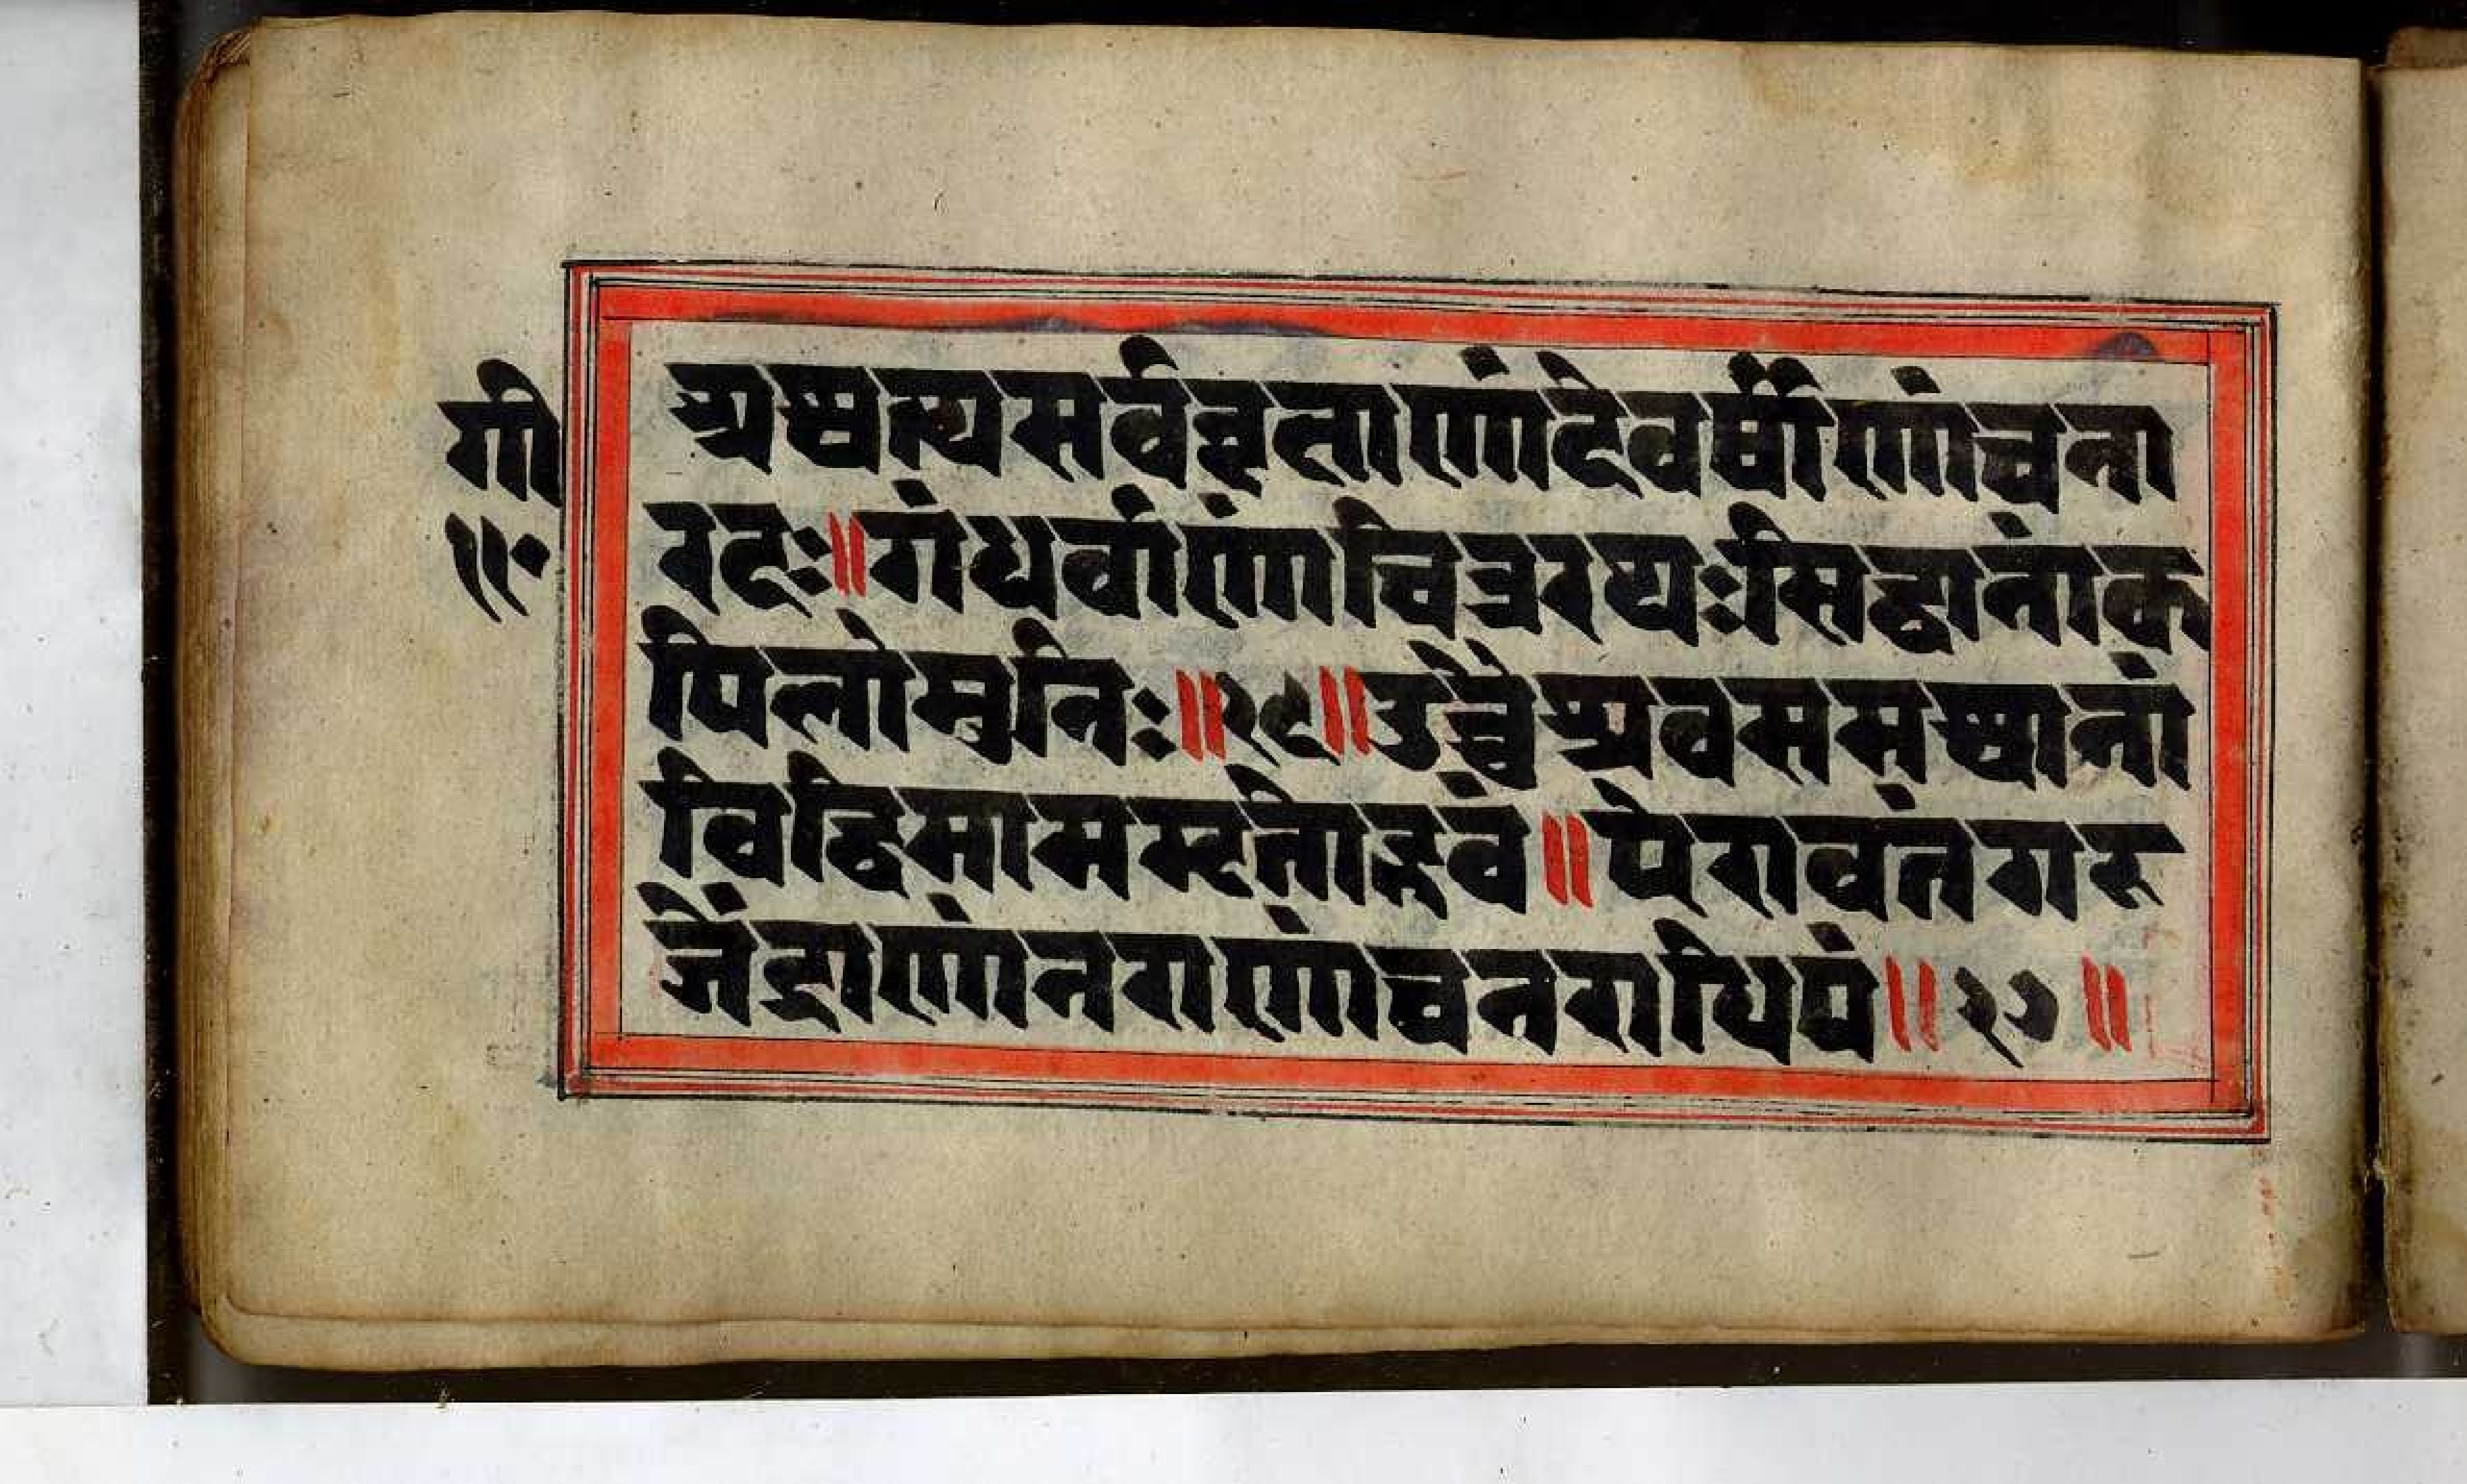 गी
११०
अश्वत्थसर्ववृक्षाणांदेवर्षीणांचना
रदः॥गंधर्वाणांचित्ररथःसिद्धानांक
पिलोमुनिः॥२६॥उच्चैश्रवसमश्वानां
विद्धिमाममृतोद्भवं॥ऐरावतंगज
जेंद्राणांनराणांचनराधिपं॥२७॥